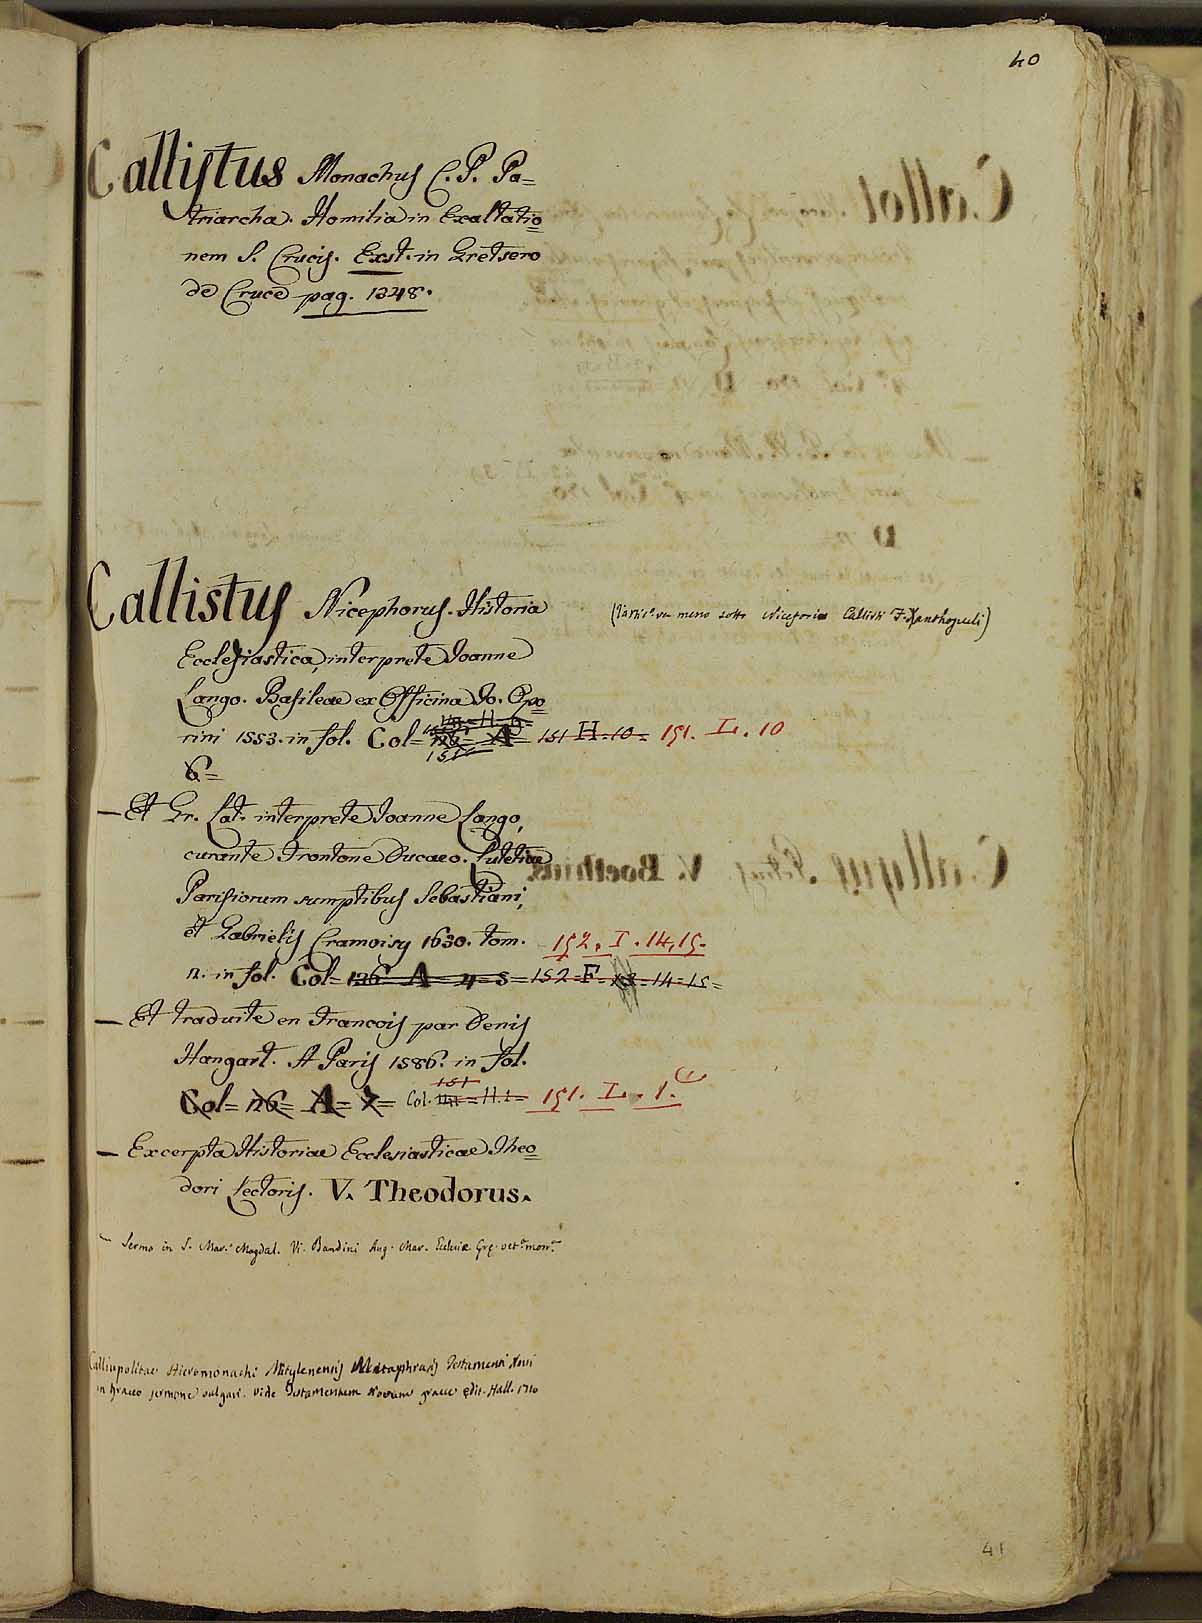 40
Callistus Monachus C. P. Pa=
triarcha. Homilia in Exaltatio
nem S. Crucis. Exst. in Gretsero
de Cruce pag. 1348.
Callistus Nicephorus. Historia
Ecclesiastica, interprete Joanne
Lango. Basileae ex Officina Jo. Opo
rini 1553. in fol. Col= 126= A= 151 H. 10= 151. L. 10
6=
— Et Gr. Lat. interprete Joanne Lango,
curante Frontone Ducaeo. Lutetiae
Parisiorum sumptibus Sebastiani,
et Gabrielis Cramoisy 1630. tom. 152. I. 14, 15.
n. in fol. Col= 126= A= 4= 5= 152= F= 13= 14= 15=
— Et traduite en Francois par Denis
Hangart. A Paris 1586. in fol.
151
Col= 126= A= 7= Col. = H. 1= 151. L. 1.
— Excerpta Historiae Ecclesiasticae Theo
dori Lectoris. V. Theodorus.
— Sermo in S. Mar. Magdal. Vi. Bandini Aug. Mar. Ecclesiæ Gre. vet. mon.
Calliupolitae Hieromonachi Mitylenensis Metaphrasis Testamenti Novi
in graeco sermone vulgari. vide Testamentum Novum graece edit. Hall. 1710
41